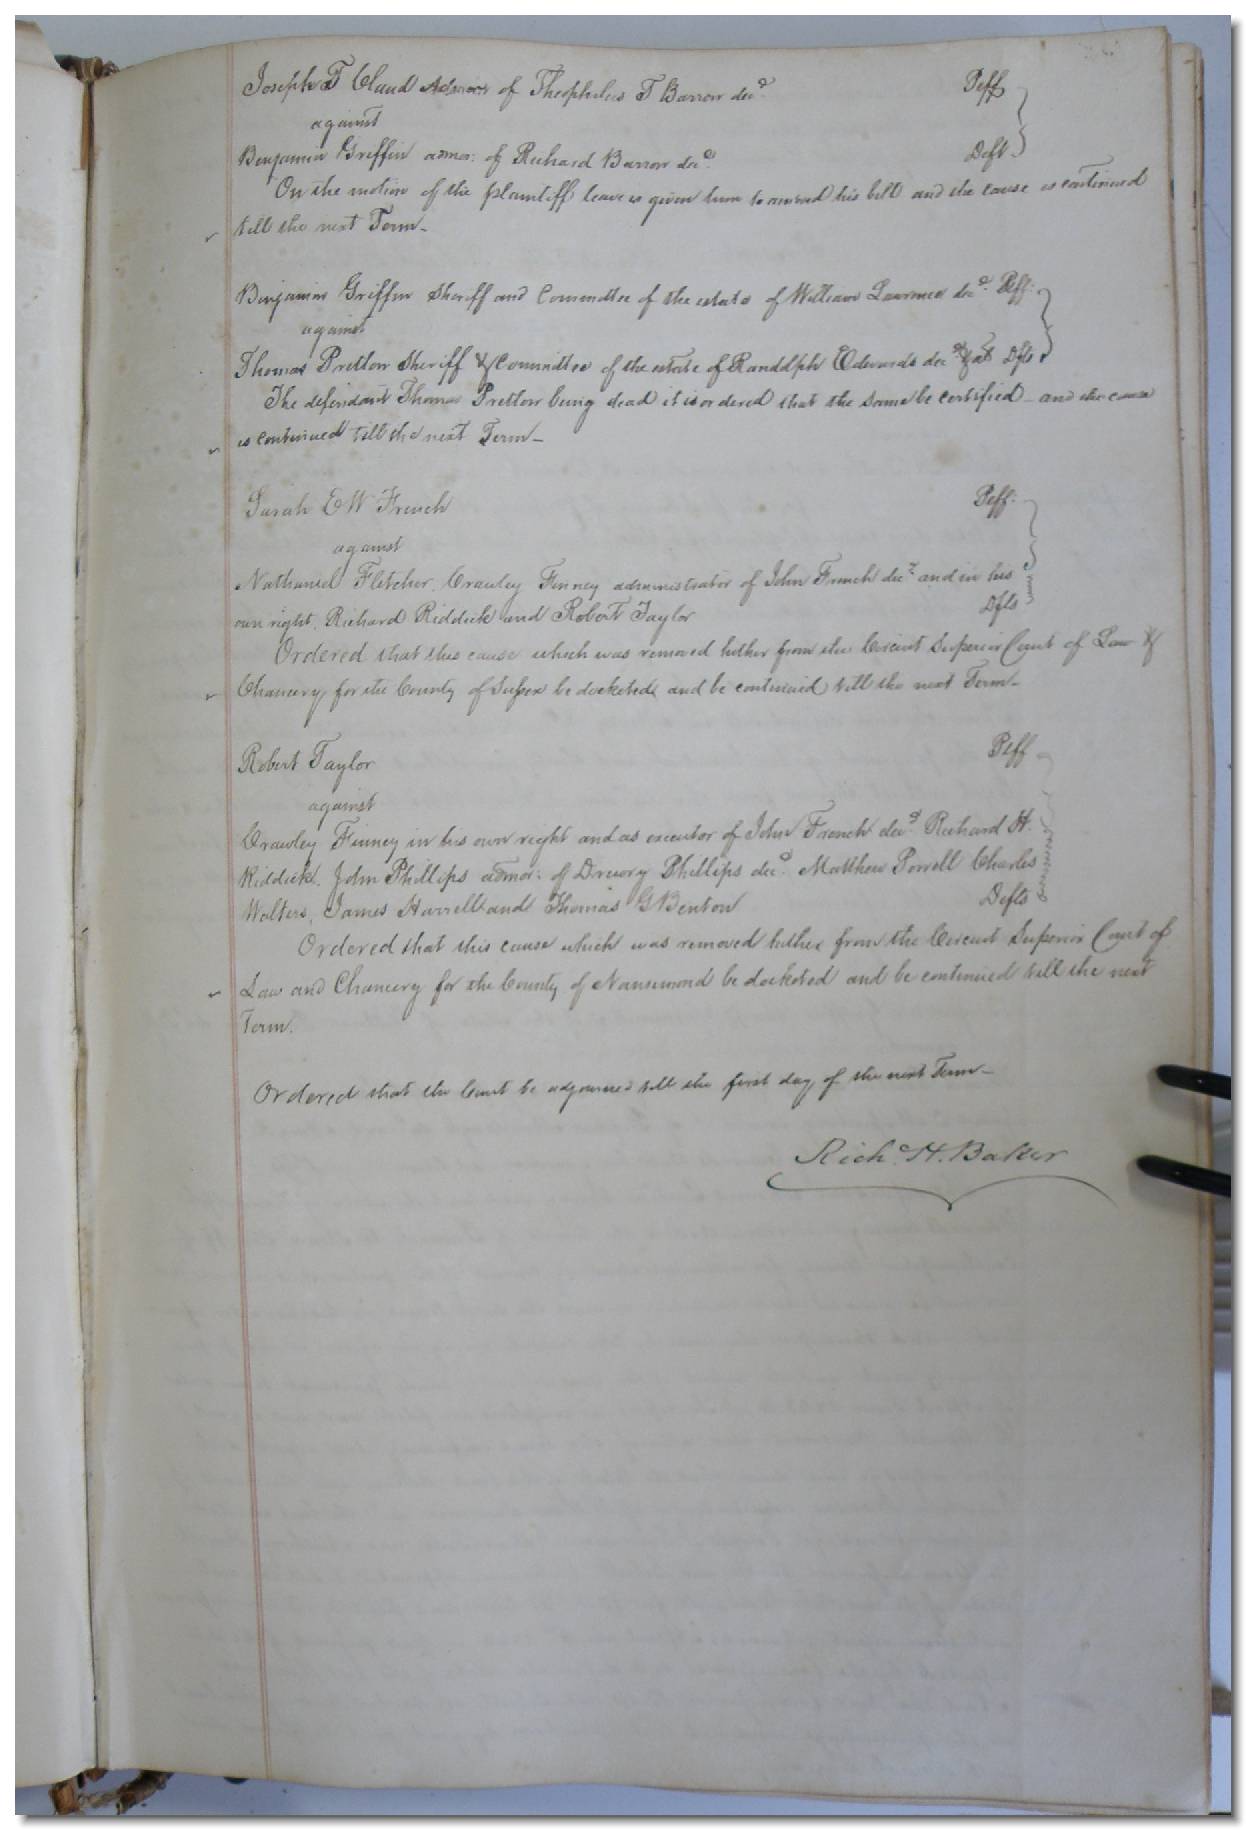 Joseph T Claud Admor of Theophilus T Barrow decd. Plff
against
Benjamin Griffin admor: of Richard Barrow decd. Deft.
On the motion of the plaintiff leave is given him to amend his bill and the cause is continued
till the next Term-
Benjamin Griffin Sheriff and Committee of the estate of William Lawrence decd. Plff.
against
Thomas Pretlow Sheriff & Committee of the estate of Randolph Edwards decd & als Dfts
The defendant Thomas Pretlow being dead it is ordered that the same be certified - and the cause
is continued till the next Term-
Sarah E W French Plff.
against
Nathaniel Fletcher, Crawley Finney administrator of John French decd. and in his
own right, Richard Riddick and Robert Taylor Dfts
Ordered that this cause which was removed hither from the Circuit Superior Court of Law &
Chancery for the County of Sussex be docketed and be continued till the next Term-
Robert Taylor Plff
against
Crawley Finney in his own right and as executor of John French decd. Richard H.
Riddick, John Phillips admor: of Drewry Phillips decd. Matthew Powell Charles
Walters, James Harrell and Thomas G Benton Defts
Ordered that this cause which was removed hither from the Circuit Superior Court of
Law and Chancery for the County of Nansemond be docketed and be continued till the next
Term.
Ordered that the Court be adjourned till the first day of the next Term-
Richd. H. Baker